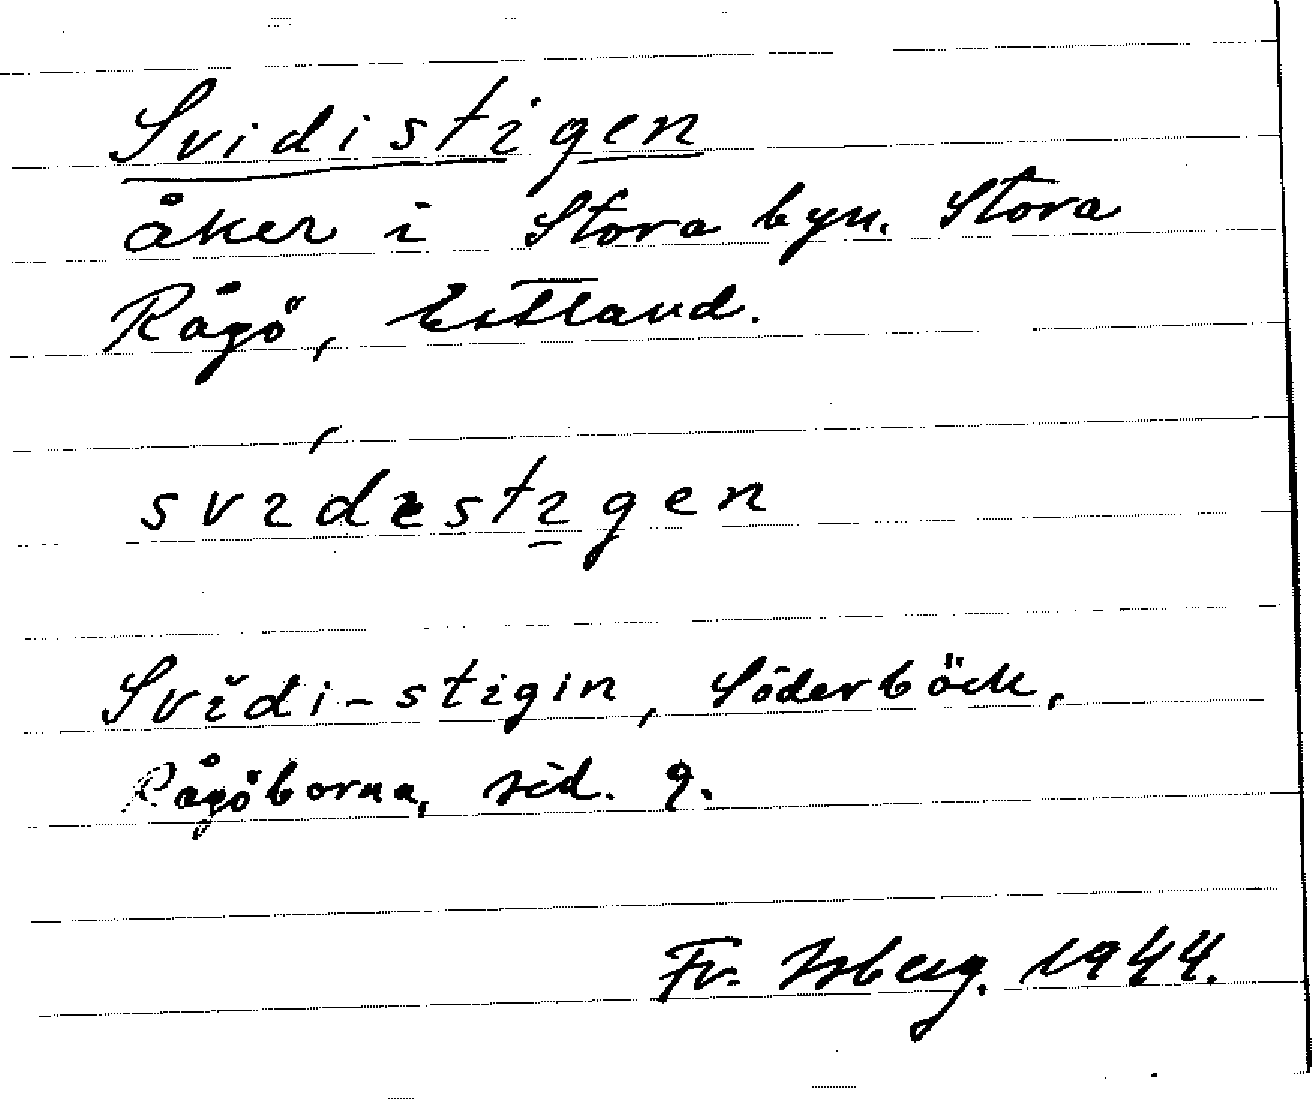 Svidistigen
åker i Stora byn. Stora
Rågö, Estland.
svidestigen
Svĭdi-stigin, Söderbäck,
Rågöborna, sid. 9.
Fr. Isberg. 1944.